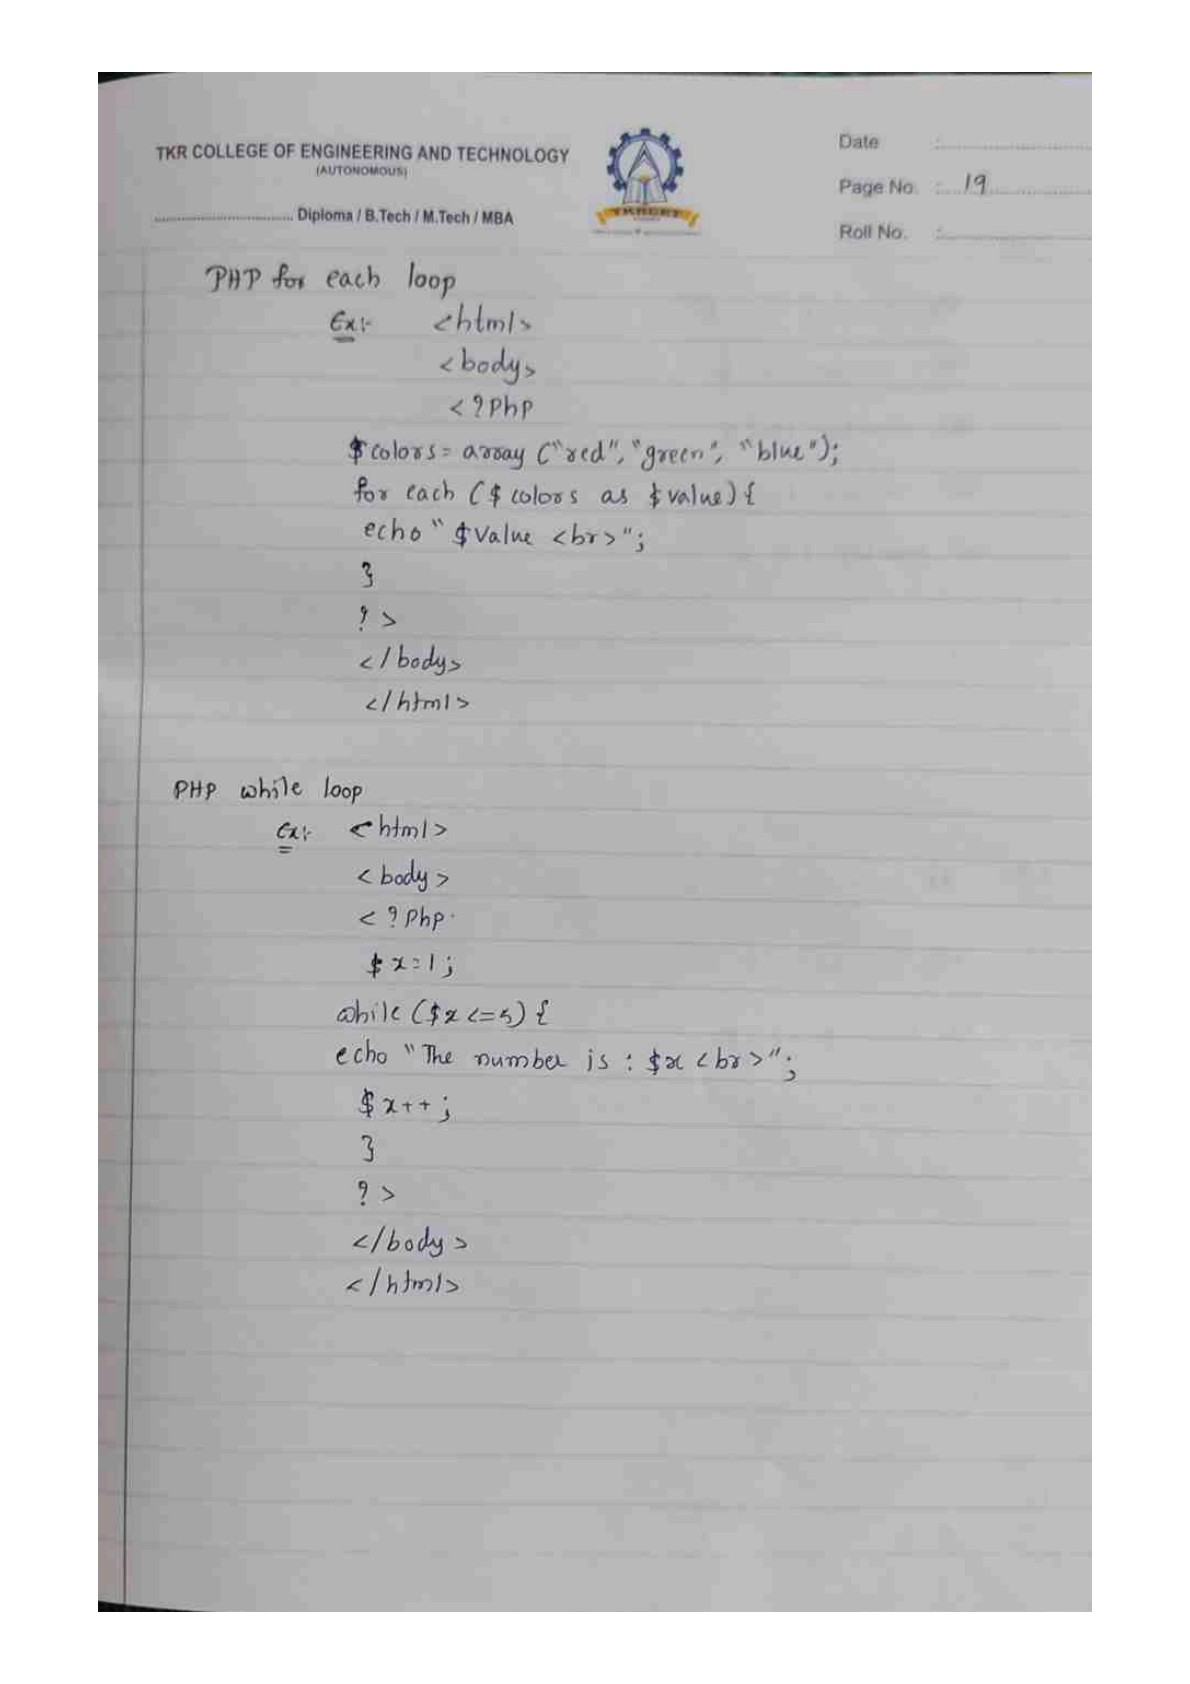 TKR COLLEGE OF ENGINEERING AND TECHNOLOGY
(AUTONOMOUS)
Diploma / B.Tech / M.Tech / MBA
TKRCET
Date :
Page No. : 19
Roll No. :
PHP for each loop
Ex:- <html>
<body>
<?Php
$colors = array ("red", "green", "blue");
for each ($ colors as $value) {
echo " $value <br>";
}
? >
</body>
</html>
PHP while loop
Ex:- <html>
<body>
<?Php
$x=1;
while ($x <=5) {
echo "The number is : $x <br>";
$x++;
}
? >
</body>
</html>